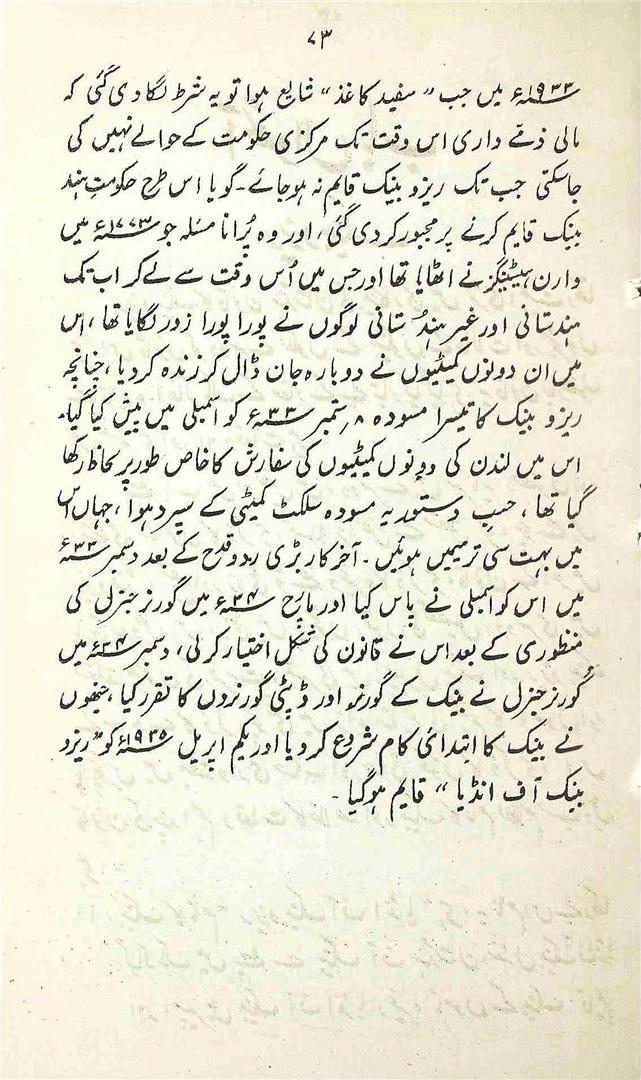 ۷۳
۱۹۳۳ء میں جب ”سفید کاغذ“ شایع ہوا تو یہ شرط لگا دی گئی کہ
مالی ذمّے داری اس وقت تک مرکزی حکومت کے حوالے نہیں کی
جاسکتی جب تک ریزو بینک قایم نہ ہوجائے۔ گویا اس طرح حکومتِ ہند
بینک قایم کرنے پر مجبور کردی گئی، اور وہ پُرانا مسئلہ جو ۱۷۷۳ء میں
وارن ہیٹینگز نے اٹھایا تھا اور جس میں اُس وقت سے لے کر اب تک
ہندستانی اور غیر ہندُستانی لوگوں نے پورا پورا زور لگایا تھا، اس
میں ان دونوں کمیٹیوں نے دوبارہ جان ڈال کر زندہ کردیا، چنانچہ
ریزو بینک کا تیسرا مسودہ ۸ ستمبر ۳۳ء کو اسمبلی میں پیش کیا گیا۔
اس میں لندن کی دونوں کمیٹیوں کی سفارش کا خاص طور پر لحاظ رکھا
گیا تھا، حسبِ دستور یہ مسودہ سلکٹ کمیٹی کے سپرد ہوا، جہاں اس
میں بہت سی ترمیمیں ہوئیں۔ آخر کار بڑی ردوقدح کے بعد دسمبر ۳۳ء
میں اس کو اسمبلی نے پاس کیا اور مارچ ۳۴ء میں گورنر جنرل کی
منظوری کے بعد اس نے قانون کی شکل اختیار کرلی، دسمبر ۳۴ء میں
گورنر جنرل نے بینک کے گورنر اور ڈپٹی گورنروں کا تقرر کیا، جنھوں
نے بینک کا ابتدائی کام شروع کردیا اور یکم اپریل ۱۹۳۵ء کو ”ریزو
بینک آف انڈیا“ قایم ہوگیا۔